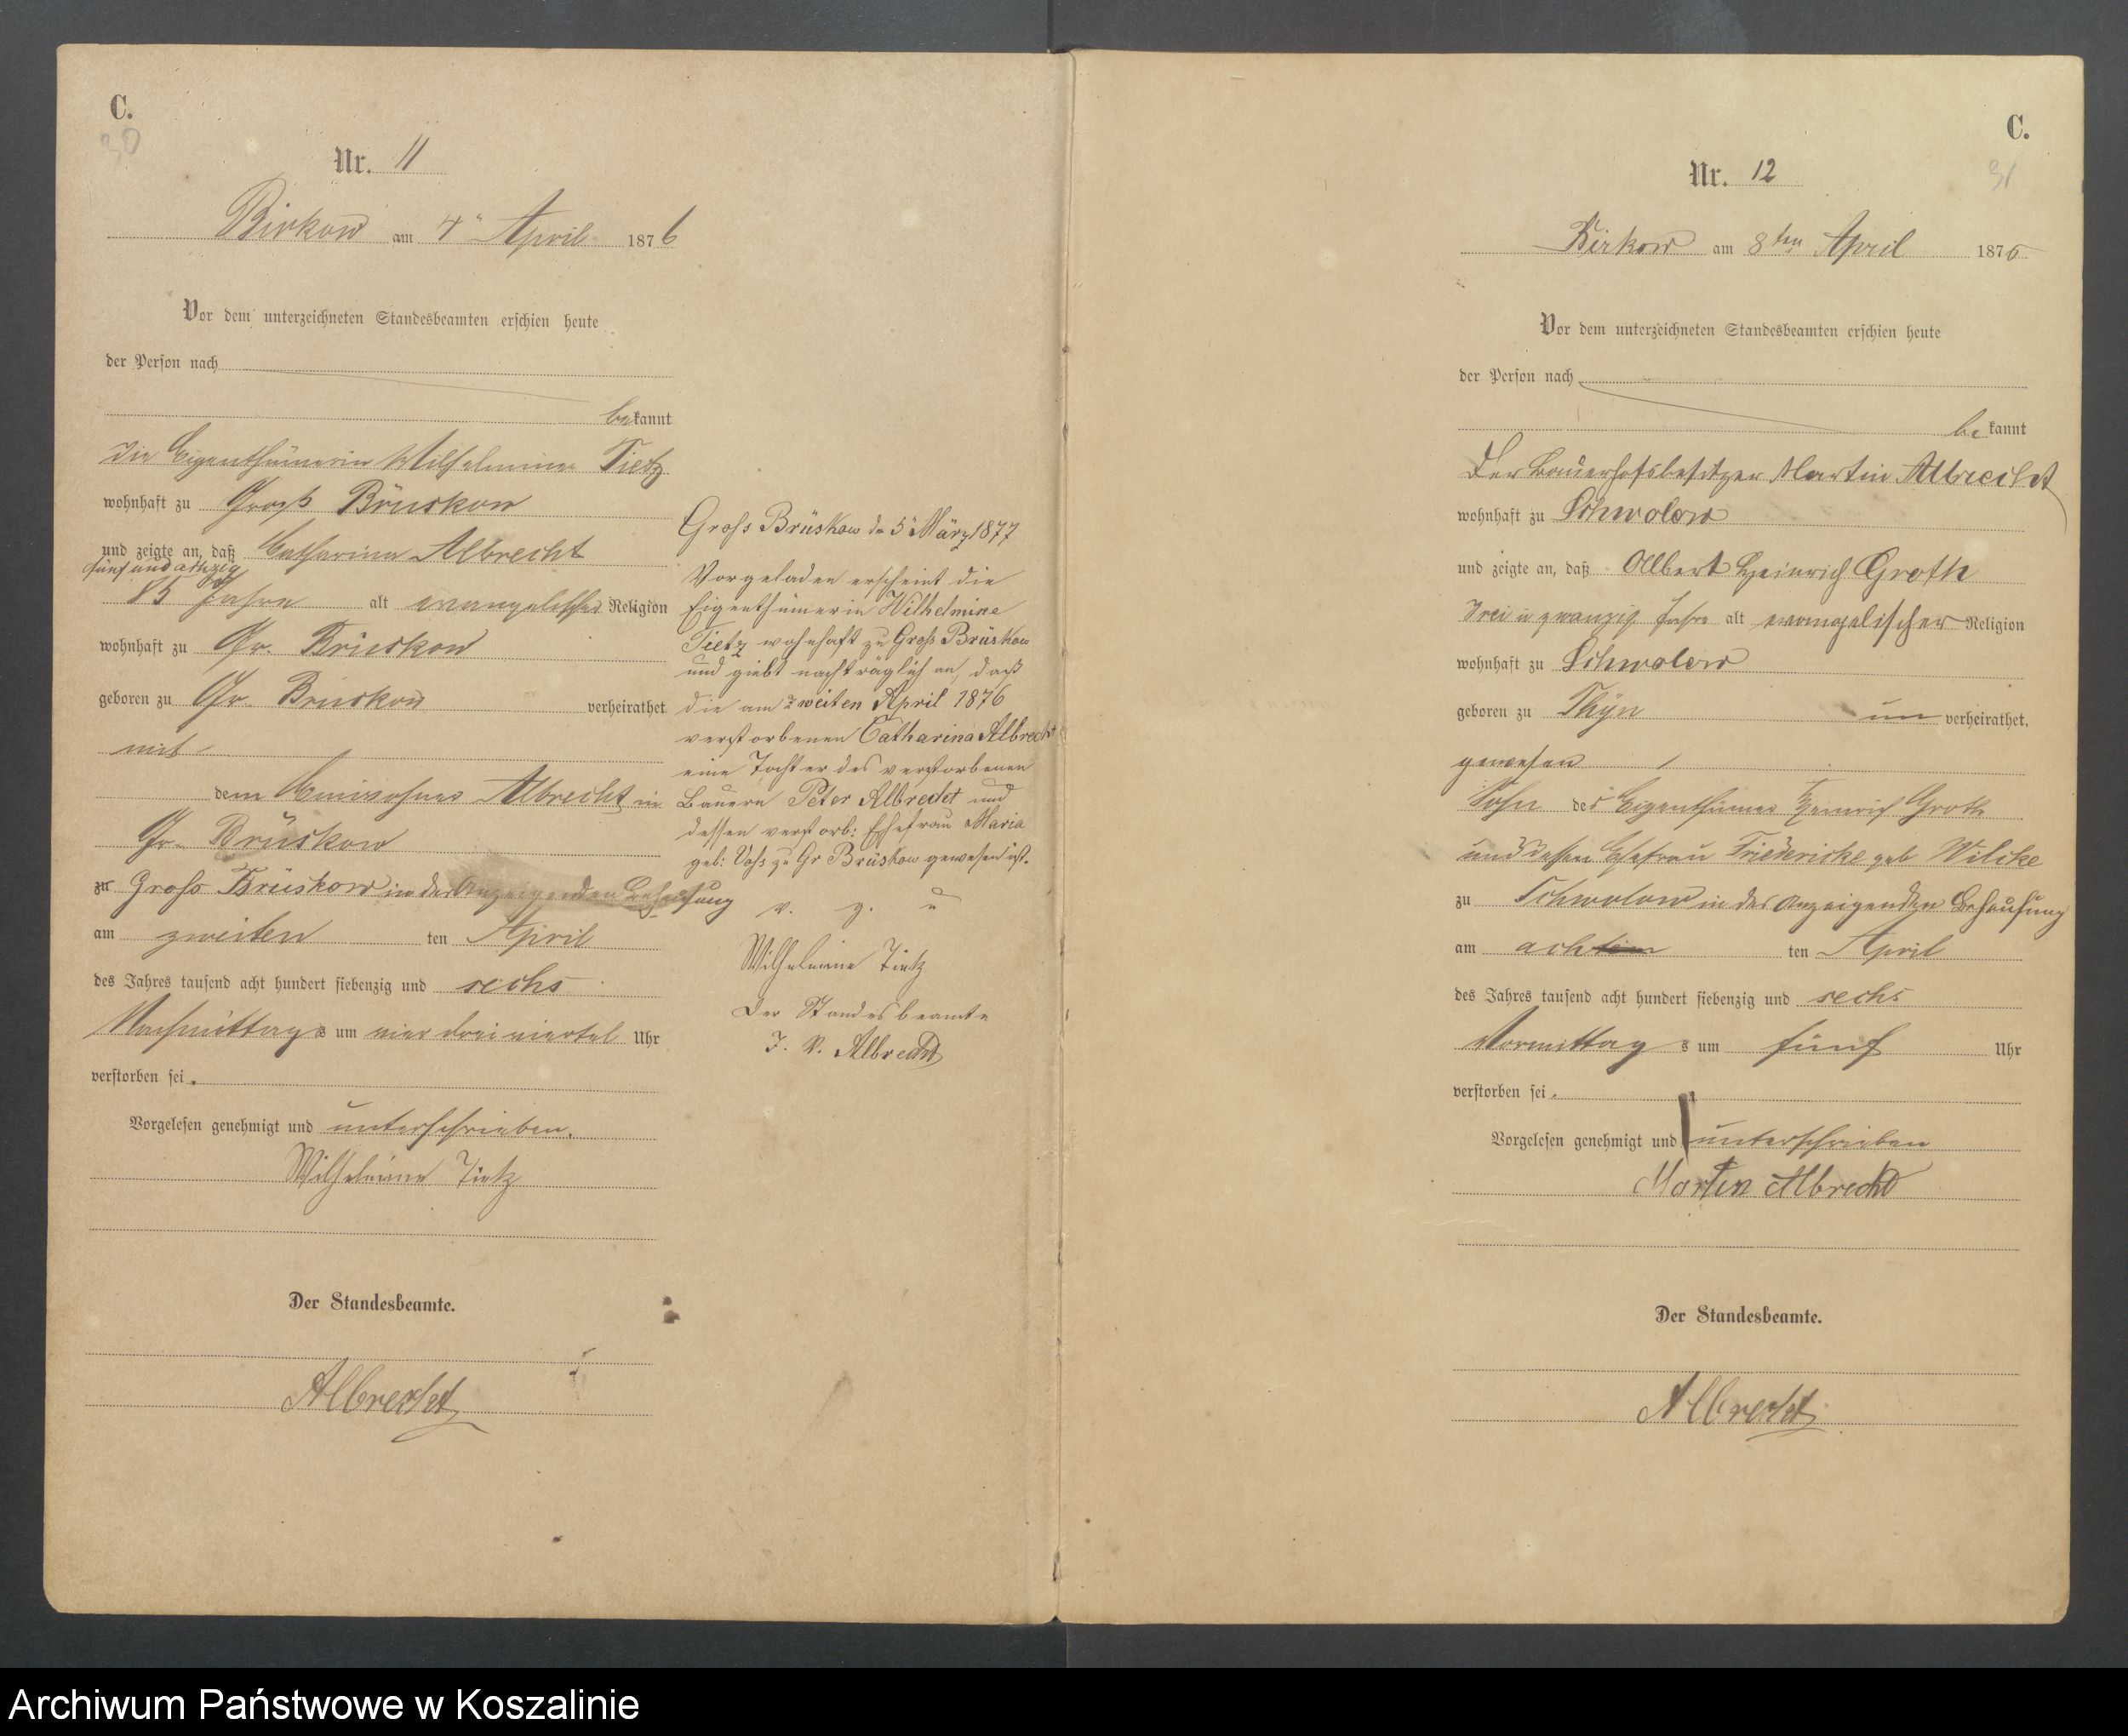 C.
30
Nr. 11
Birkow am 4" April 1876
Vor dem unterzeichneten Standesbeamten erschien heute
der Person nach
bekannt
die Eigenthümerin Wilhelmine Tietz
wohnhaft zu Groß Brüskow
und zeigte an, daß Catharina Albrecht
fünf und achtzig
85 Jahre alt evangelischer Religion
wohnhaft zu Gr. Brüskow
geboren zu Gr. Brüskow verheirathet
mit
dem Albrecht in
Gr. Brüskow
zu Gross Brüskow in der Anzeigenden Behausung
am zweiten ten April
des Jahres tausend acht hundert siebenzig und sechs
Nachmittags um vier dreiviertel Uhr
verstorben sei.
Vorgelesen genehmigt und unterschrieben.
Wilhelmine Tietz
Der Standesbeamte.
Albrecht
Gross Brüskow d 5" März 1877
Vorgeladen erscheint die
Eigenthümerin Wilhelmine
Tietz wohnhaft zu Gross Brüskow
und giebt nachträglich an, daß
die am zweiten April 1876
verstorbenen Catharina Albrecht
eine Tochter des verstorbenen
Bauern Peter Albrecht und
dessen verstorb: Ehefrau Maria
geb: Voss zu Gr Brüskow gewesen ist.
v. g. u
Wilhelmine Tietz
Der Standesbeamte
J. V. Albrecht
C.
31
Nr. 12
Birkow am 8ten April 1876
Vor dem unterzeichneten Standesbeamten erschien heute
der Person nach
bekannt
Der Bauerhofsbesitzer Martin Albrecht
wohnhaft zu Schwolow
und zeigte an, daß Albert Heinrich Groth
drei u zwanzig Jahre alt evangelischer Religion
wohnhaft zu Schwolow
geboren zu Thyn un verheirathet.
gewesen
Sohn des Eigenthümer Heinrich Groth
und dessen Ehefrau Friedericke geb Wilcke
zu Schwolow in des Anzeigenden Behausung
am achten ten April
des Jahres tausend acht hundert siebenzig und sechs
Vormittag s um fünf Uhr
verstorben sei.
Vorgelesen genehmigt und unterschrieben
Martin Albrecht
Der Standesbeamte.
Albrecht
Archiwum Państwowe w Koszalinie